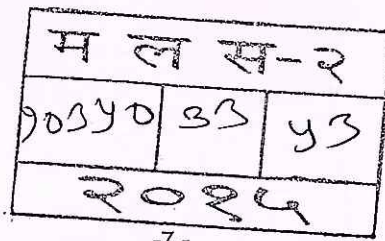 म ल स-२
१०३५० ३३ ५३
२०१५
-7-